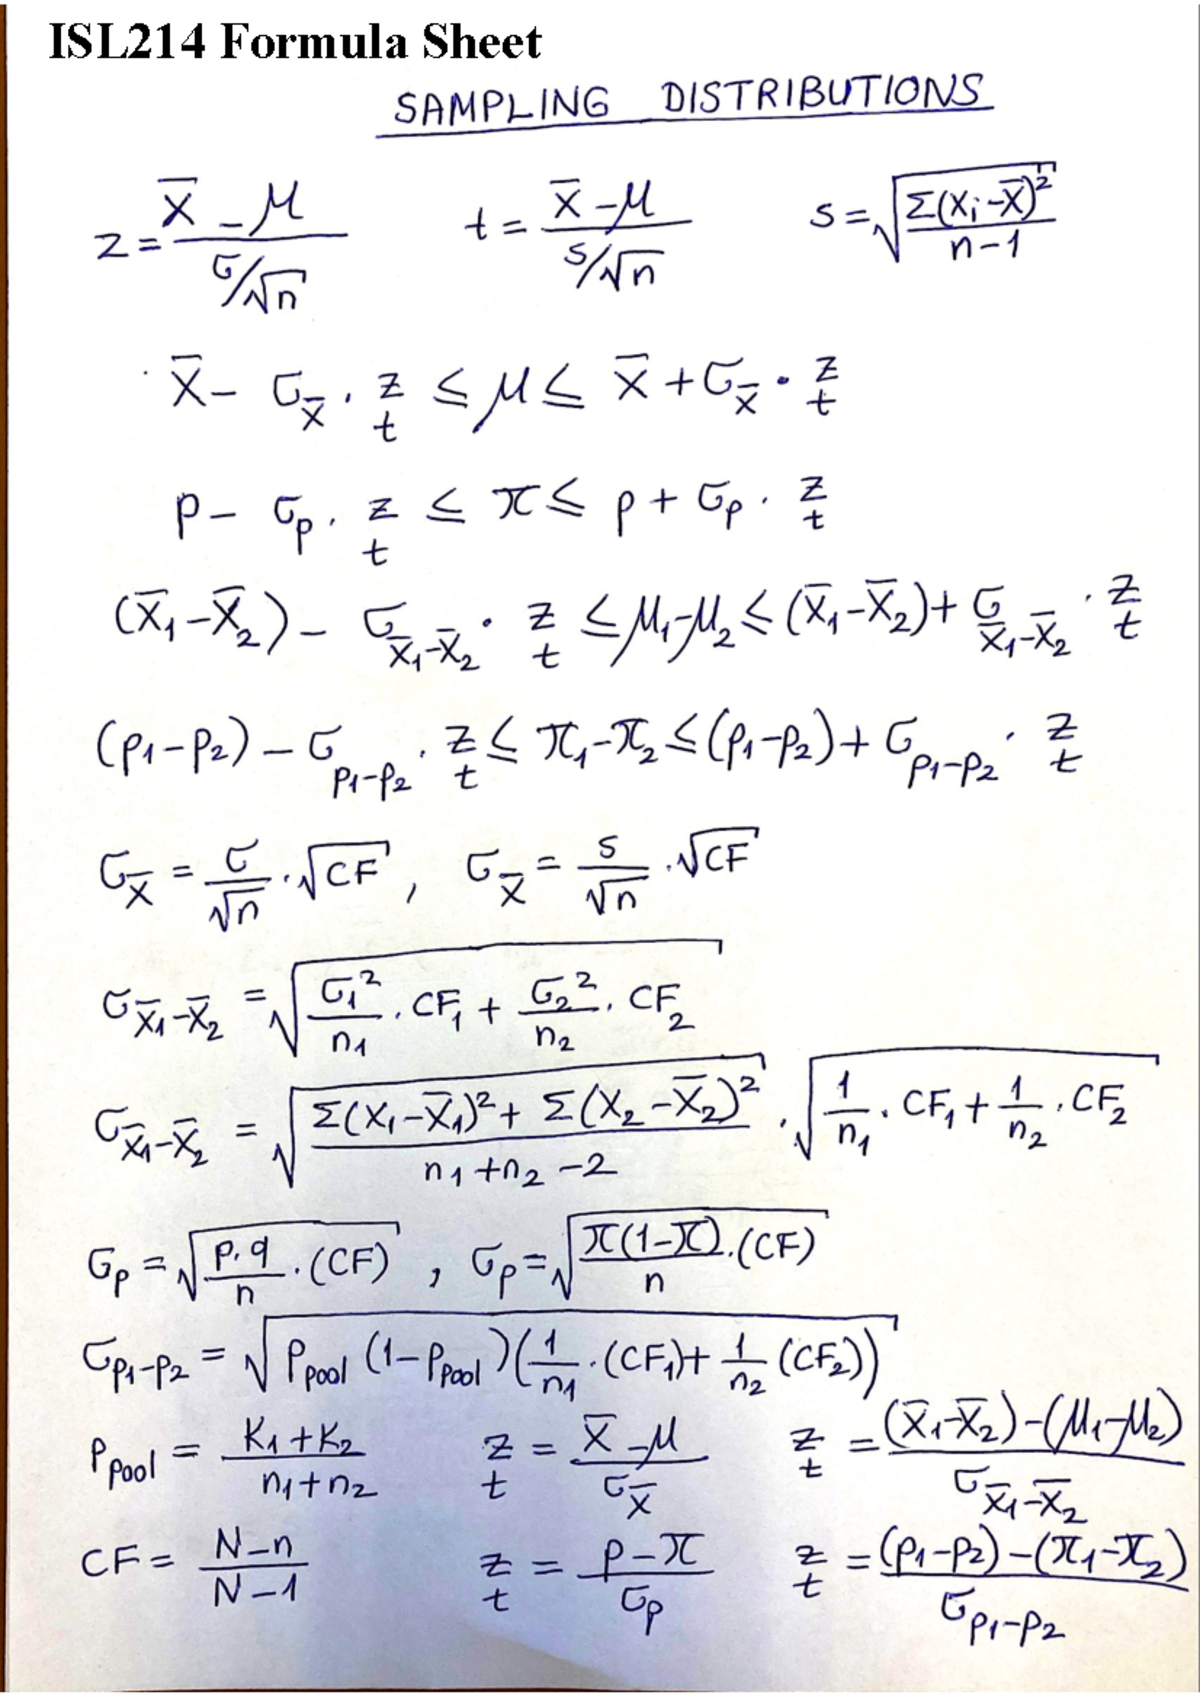 ISL214 Formula Sheet
SAMPLING DISTRIBUTIONS
z = (x̄ - μ) / (σ/√n)    t = (x̄ - μ) / (s/√n)    s = √(Σ(xᵢ - x̄)² / (n-1))
x̄ - σ_x̄ · z/t ≤ μ ≤ x̄ + σ_x̄ · z/t
p - σ_p · z/t ≤ π ≤ p + σ_p · z/t
(x̄₁ - x̄₂) - σ_x̄₁-x̄₂ · z/t ≤ μ₁-μ₂ ≤ (x̄₁ - x̄₂) + σ_x̄₁-x̄₂ · z/t
(p₁-p₂) - σ_p₁-p₂ · z/t ≤ π₁-π₂ ≤ (p₁-p₂) + σ_p₁-p₂ · z/t
σ_x̄ = σ/√n · √CF , σ_x̄ = s/√n · √CF
σ_x̄₁-x̄₂ = √(σ₁²/n₁ · CF₁ + σ₂²/n₂ · CF₂)
σ_x̄₁-x̄₂ = √((Σ(x₁-x̄₁)² + Σ(x₂-x̄₂)²) / (n₁+n₂-2)) · √(1/n₁ · CF₁ + 1/n₂ · CF₂)
σ_p = √(p.q/n · (CF)) , σ_p = √(π(1-π)/n · (CF))
σ_p₁-p₂ = √(p_pool (1-p_pool)(1/n₁ · (CF₁) + 1/n₂ (CF₂)))
p_pool = (K₁+K₂) / (n₁+n₂)    z/t = (x̄ - μ) / σ_x̄    z/t = ((x̄₁-x̄₂) - (μ₁-μ₂)) / σ_x̄₁-x̄₂
CF = (N-n) / (N-1)    z/t = (p-π) / σ_p    z/t = ((p₁-p₂) - (π₁-π₂)) / σ_p₁-p₂